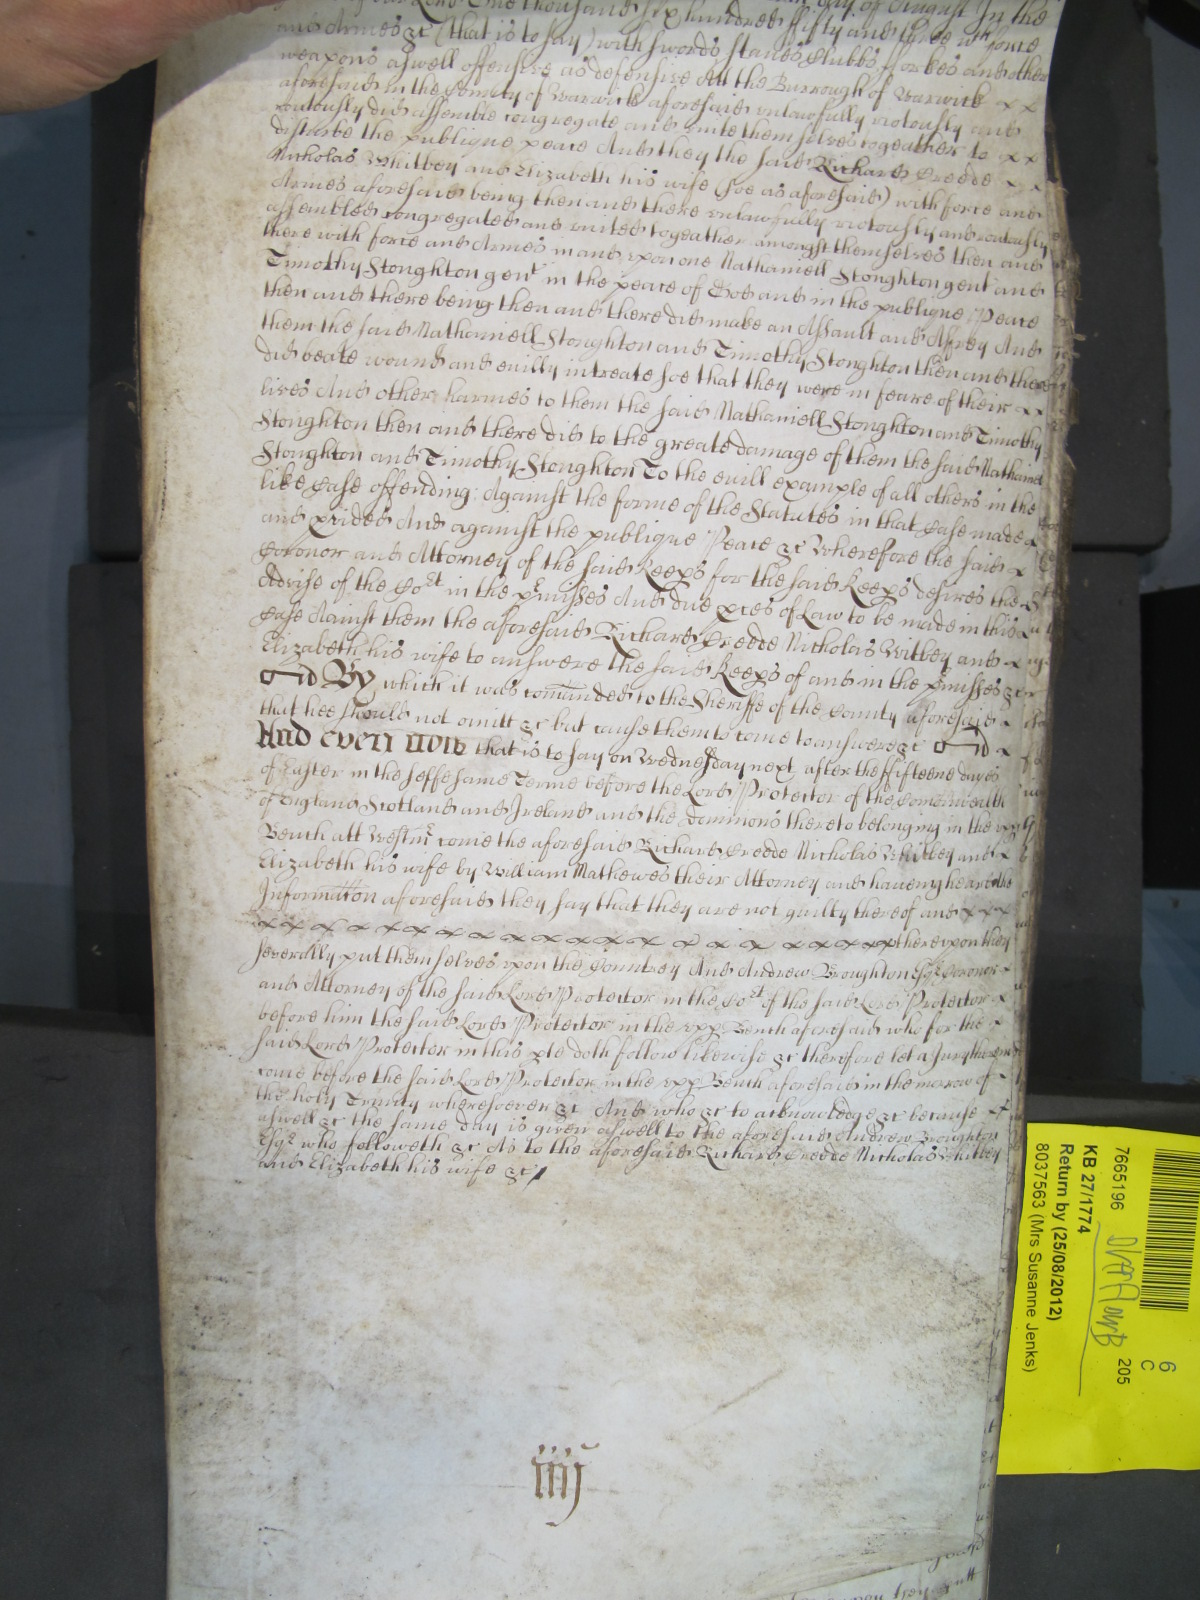 of our Lord One thousand six hundred fifty and three wth force
and Armes &c (that is to say) with swords staves Clubbs forkes and other
weapons aswell offensive as defensive Att the Burrough of Warwick x x
aforesaid in the County of Warwick aforesaid unlawfully riotously and
routously did assemble congregate and unite themselves togeather to x x
disturbe the publique peace And they the said Richard Credde x x
Nicholas Whitbey and Elizabeth his wife (soe as aforesaid) with force and
Armes aforesaid being then and there unlawfully riotously and routously
assembled congregated and united togeather amongst themselves then and
there with force and Armes in and upon one Nathaniell Stoughton gent and
Timothy Stoughton gent in the peace of God and in the publique Peace
then and there being then and there did make an Assault and Afray And
them the said Nathaniell Stoughton and Timothy Stoughton then and there
did beate wound and evilly intreate soe that they were in feare of their x x
lives And other harmes to them the said Nathaniell Stoughton and Timothy
Stoughton then and there did to the greate damage of them the said Nathaniell
Stoughton and Timothy Stoughton To the evill example of all others in the
like Case offending Against the forme of the Statutes in that Case made x
and pvided And against the publique Peace &c Wherefore the said x
Coronor and Attorney of the said Keeps for the said Keeps desires the
Advise of the Cort in the pmisses And due pces of Law to be made in this x
Case Against them the aforesaid Richard Credde Nicholas Witbey and x
Elizabeth his wife to answere the said Keeps of and in the pmisses &c
And By which it was comanded to the Sheriffe of the County aforesaid x
that hee should not omitt &c but cause them to come to answere &c And x
And even now that is to say on Wednesday next after the fifteene dayes
of Easter in the selfe same Terme before the Lord Protector of the Comonwealth
of England Scotland and Ireland and the dominions thereto belonging in the upp
Bench att Westmr come the aforesaid Richard Credde Nicholas Whitbey and x
Elizabeth his wife by William Mathewes their Attorney and haveing heard the
Information aforesaid they say that they are not guilty thereof and x x x
x x x x x x x x x x x x x x x x x x x x x thereupon they
severally put themselves upon the Countrey And Andrew Broughton Esqr Coronor x
and Attorney of the said Lord Protector in the Cort of the said Lord Protector x
before him the said Lord Protector in the upp Bench aforesaid who for the x
said Lord Protector in this pte doth follow likewise &c therefore let a Jury thereupon
come before the said Lord Protector in the upp Bench aforesaid in the morrow of x
the holy Trinity wheresoever &c And who &c to acknowledge &c because x
aswell &c the same day is given aswell to the aforesaid Andrew Broughton
Esqr who followeth &c As to the aforesaid Richard Credde Nicholas Whitbey
and Elizabeth his wife &c
iiij
6
C
7665196 205
KB 27/1774
Return by (25/08/2012)
8037563 (Mrs Susanne Jenks)